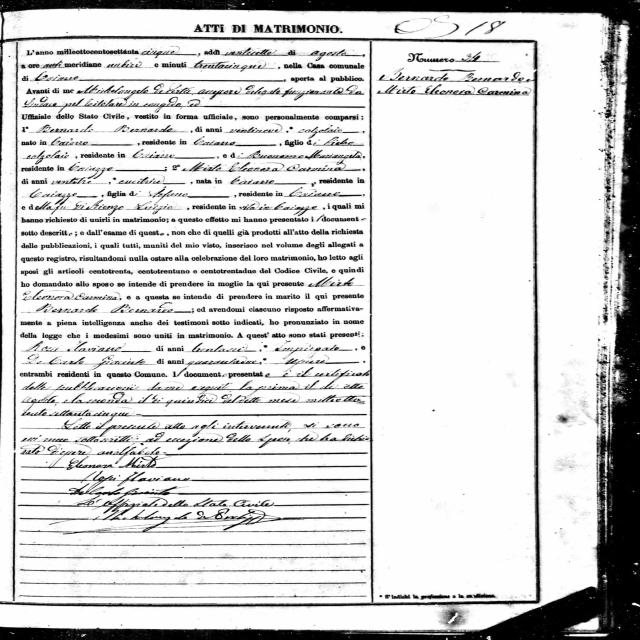 ATTI DI MATRIMONIO.
18
L'anno milleottocentosettanta cinque, addì ventisette di agosto
a ore anti meridiane undici e minuti trentacinque, nella Casa comunale
di Caiazzo, aperta al pubblico.
Avanti di me Michelangelo
Sindaco
Uffiziale dello Stato Civile, vestito in forma ufficiale, sono personalmente comparsi:
1° Bernardo Bernardo, di anni ventinove, calzolaio,
nato in Caiazzo, residente in Caiazzo, figlio di Pietro
calzolaio, residente in Caiazzo, e di Buonomo Mariangela,
residente in Caiazzo; 2° Mirto Eleonora Carmina
di anni ventitre, cucitrice, nata in Caiazzo, residente in
Caiazzo, figlia di Stefano, residente in Caiazzo
e di residente in Caiazzo, i quali mi
hanno richiesto di unirli in matrimonio; a questo effetto mi hanno presentato i document
sotto descritt; e dall'esame di quest, non che di quelli già prodotti all'atto della richiesta
delle pubblicazioni, i quali tutti, muniti del mio visto, inserisco nel volume degli allegati a
questo registro, risultandomi nulla ostare alla celebrazione del loro matrimonio, ho letto agli
sposi gli articoli centotrenta, centotrentuno e centotrentadue del Codice Civile, e quindi
ho domandato allo sposo se intende di prendere in moglie la qui presente Mirto
Eleonora Carmina, e a questa se intende di prendere in marito il qui presente
Bernardo Bernardo; ed avendomi ciascuno risposto affermativa-
mente a piena intelligenza anche dei testimoni sotto indicati, ho pronunziato in nome
della legge che i medesimi sono uniti in matrimonio. A quest' atto sono stati presenti:
Rossi Flaviano di anni trentasei, Impiegato e
De Carlo Giacinto di anni quarantacinque, Usciere
entrambi residenti in questo Comune. I document presentat è il certificato
delle pubblicazioni la prima il dì otto
agosto, e la seconda il dì quindici del detto mese milleotto-
cento settanta cinque
Letto il presente atto agli intervenuti, si sono
con me sottoscritti, ad eccezione dello sposo, che ha dichia-
rato d'essere analfabeto
Eleonora Mirto
Rossi Flaviano
De Carlo Giacinto
L'Uffiziale dello Stato Civile
Numero 34
Bernardo Bernardo e
Mirto Eleonora Carmina
* S'indichi la professione o la condizione.